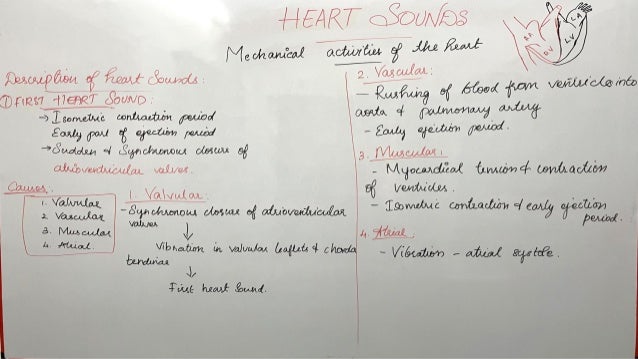 HEART SOUNDS
Mechanical activities of the heart
R A
L A
R V
L V
Description of heart Sounds:
① FIRST HEART SOUND:
→ Isometric contraction period
Early part of ejection period
→ Sudden & Synchronous closure of
atrioventricular valves.
Causes:
1. Valvular
2. Vascular
3. Muscular
4. Atrial.
1. Valvular:
- Synchronous closure of atrioventricular
valves
↓
Vibration in valvular leaflets & chorda
tendinae
↓
First heart Sound.
2. Vascular:
- Rushing of blood from ventricles into
aorta & pulmonary artery
- Early ejection period.
3. Muscular:
- Myocardical tension & contraction
of ventricles.
- Isometric contraction & early ejection
period.
4. Atrial:
- Vibration - atrial systole.